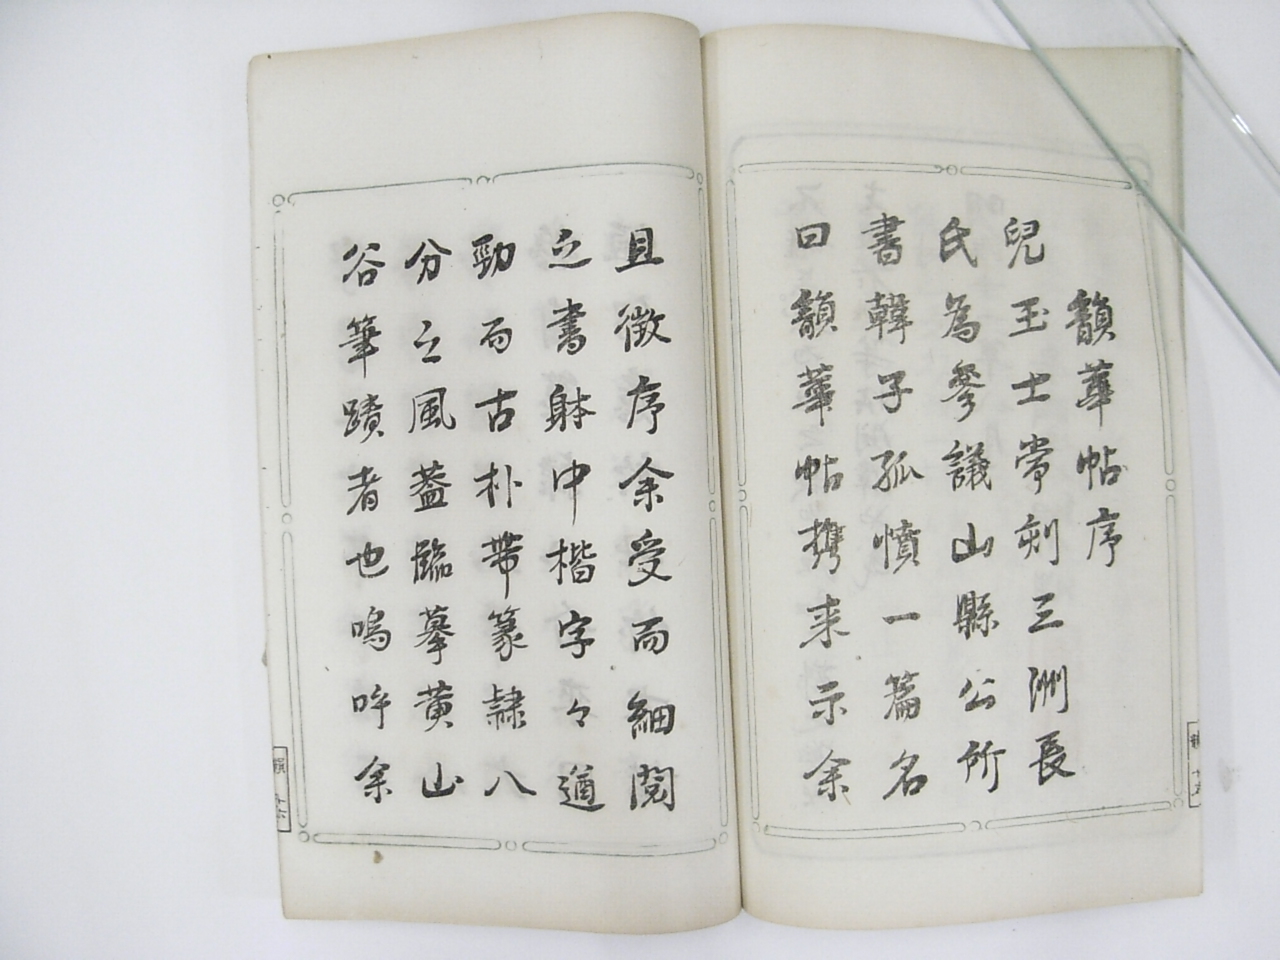 韻華帖序
兒玉士常刻三洲長
氏為參議山縣公所
書韓子孤憤一篇名
曰韻華帖携来示余
且徴序余受而細閲
之書躰中楷字々遒
勁而古朴帶篆隷八
分之風葢臨摹黄山
谷筆蹟者也嗚呼余